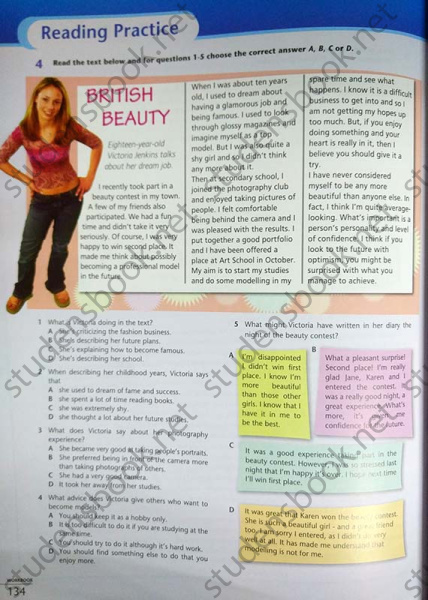 Reading Practice
4 Read the text below and for questions 1-5 choose the correct answer A, B, C or D.
BRITISH
BEAUTY
Eighteen-year-old
Victoria Jenkins talks
about her dream job.
I recently took part in a
beauty contest in my town.
A few of my friends also
participated. We had a fun
time and didn't take it very
seriously. Of course, I was very
happy to win second place. It
made me think about possibly
becoming a professional model
in the future.
When I was about ten years
old, I used to dream about
having a glamorous job and
being famous. I used to look
through glossy magazines and
imagine myself as a top
model. But I was also quite a
shy girl and so I didn't think
any more about it.
Then at secondary school, I
joined the photography club
and enjoyed taking pictures of
people. I felt comfortable
being behind the camera and I
was pleased with the results. I
put together a good portfolio
and I have been offered a
place at Art School in October.
My aim is to start my studies
and do some modelling in my
spare time and see what
happens. I know it is a difficult
business to get into and so I
am not getting my hopes up
too much. But, if you enjoy
doing something and your
heart is really in it, then I
believe you should give it a
try.
I have never considered
myself to be any more
beautiful than anyone else. In
fact, I think I'm quite average-
looking. What's important is a
person's personality and level
of confidence. I think if you
look to the future with
optimism, you might be
surprised with what you
manage to achieve.
1 What is Victoria doing in the text?
A She's criticizing the fashion business.
B She's describing her future plans.
C She's explaining how to become famous.
D She's describing her school.
2 When describing her childhood years, Victoria says
that
A she used to dream of fame and success.
B she spent a lot of time reading books.
C she was extremely shy.
D she thought a lot about her future studies.
3 What does Victoria say about her photography
experience?
A She became very good at taking people's portraits.
B She preferred being in front of the camera more
than taking photographs of others.
C She had a very good camera.
D It took her away from her studies.
4 What advice does Victoria give others who want to
become models?
A You should keep it as a hobby only.
B It is too difficult to do it if you are studying at the
same time.
C You should try to do it although it's hard work.
D You should find something else to do that you
enjoy more.
5 What might Victoria have written in her diary the
night of the beauty contest?
A
I'm disappointed
I didn't win first
place. I know I'm
more beautiful
than those other
girls. I know that
I have it in me to
be the best.
B
What a pleasant surprise!
Second place! I'm really
glad Jane, Karen and I
entered the contest. It
was a really good night, a
great experience. What's
more, it's given me
confidence for the future.
C
It was a good experience taking part in the
beauty contest. However, I was so stressed last
night that I'm happy it's over. I hope next time
I'll win first place.
D
It was great that Karen won the beauty contest.
She is such a beautiful girl - and a great friend
too. I am sorry I entered, as I didn't do very
well at all. It has made me understand that
modelling is not for me.
WORKBOOK
134
studensbook.net